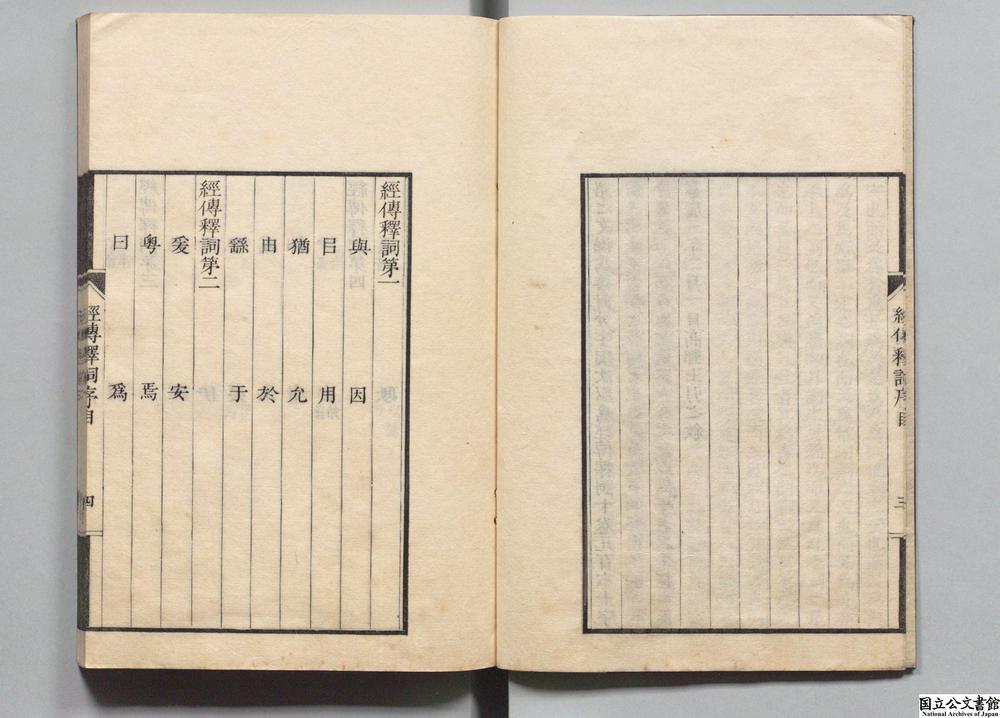 經傳釋詞序目
三
經傳釋詞第一
與 因
㠯 用
猶 允
由 於
繇 于
經傳釋詞第二
爰 安
粵 焉
曰 爲
經傳釋詞序目
四
国立公文書館
National Archives of Japan